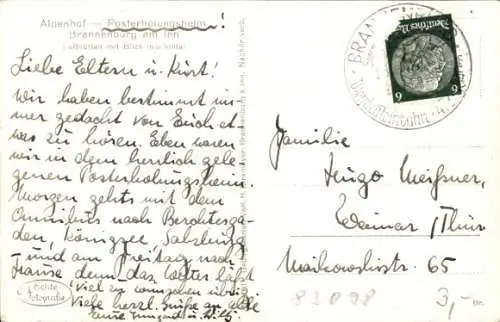 Alpenhof — Posterholungsheim !
Brannenburg am Inn
Luftbütten mit Blick
Liebe Eltern u. Kurt!
Wir haben bestimmt im-
mer gedacht von Euch et-
was zu hören. Eben waren
wir in dem herrlich gele-
genen Posterholungsheim.
Morgen gehts mit dem
Omnibus nach Berchtesga-
den, Königssee, Salzburg
und am Freitag nach
Hause denn das Wetter läßt
viel zu wünschen übrig
Viele herzl. Grüße an alle
Eure Irmgard u. Willy.
Echte
Fotografie
BRANNENBURG
Wendelsteinbahn
Deutsches Reich
6 6
Familie
Hugo Meißner,
Weimar / Thür
Maikowskistr. 65
83098
3,-